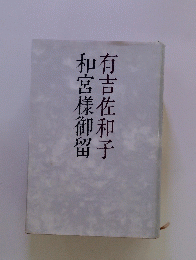 有吉佐和子
和宮様御留